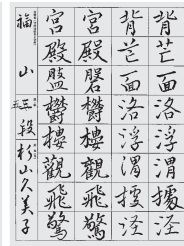 背芒面洛浮渭據涇
背芒面洛浮渭據涇
宮殿盤鬱樓觀飛驚
宮殿盤鬱樓觀飛驚
福山 三段 杉山久美子